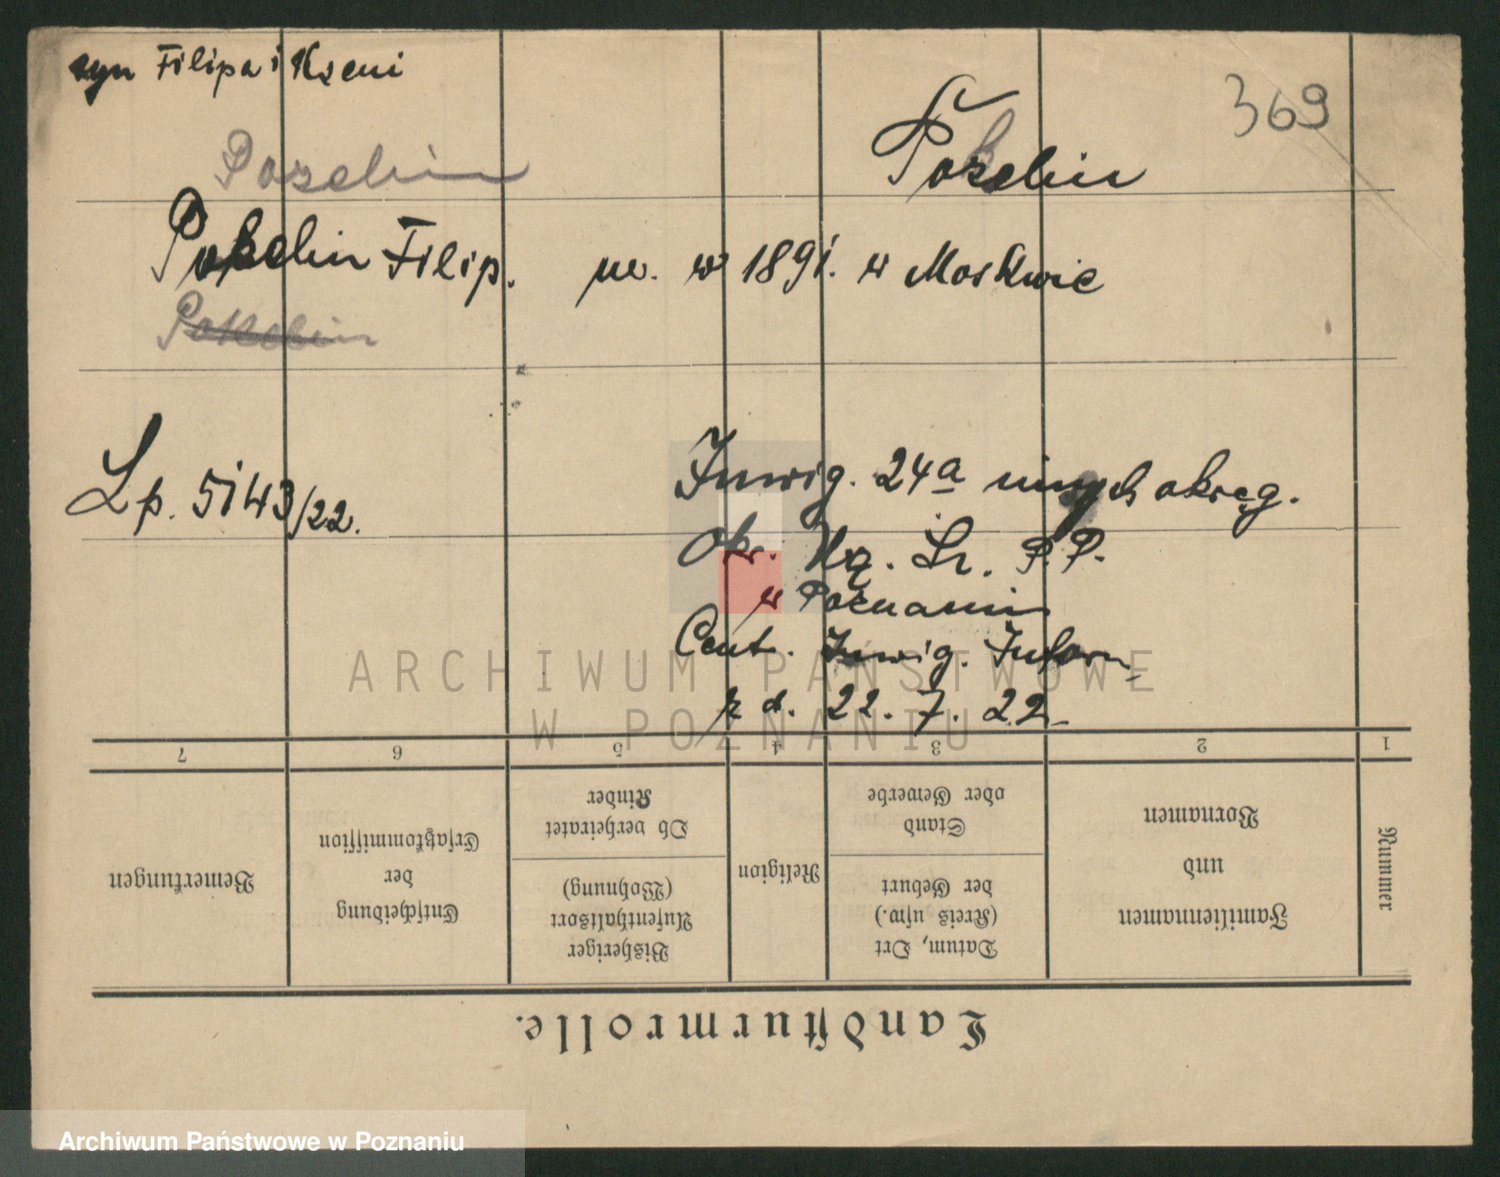 syn Filipa i Kseni
369
Pozelin
Pozelin
Pozelin Filip. ur. w 1891. w Moskwie
Pokelin
Lp. 5143/22.
Inwig. 24a innych okręg.
Okr. Kg. Śl. P.P.
w Poznaniu
Cent. Inwig. Inform.
z d. 22. 7. 22
ARCHIWUM PAŃSTWOWE
W POZNANIU
Landsturmrolle.
Nummer
Familiennamen
und
Vornamen
Datum, Ort
(Kreis usw.)
der Geburt
Stand
oder Gewerbe
Religion
Bisheriger
Aufenthaltsort
(Wohnung)
Ob verheiratet
Kinder
Entscheidung
der
Ersatzkommission
Bemerkungen
1 2 3 4 5 6 7
Archiwum Państwowe w Poznaniu